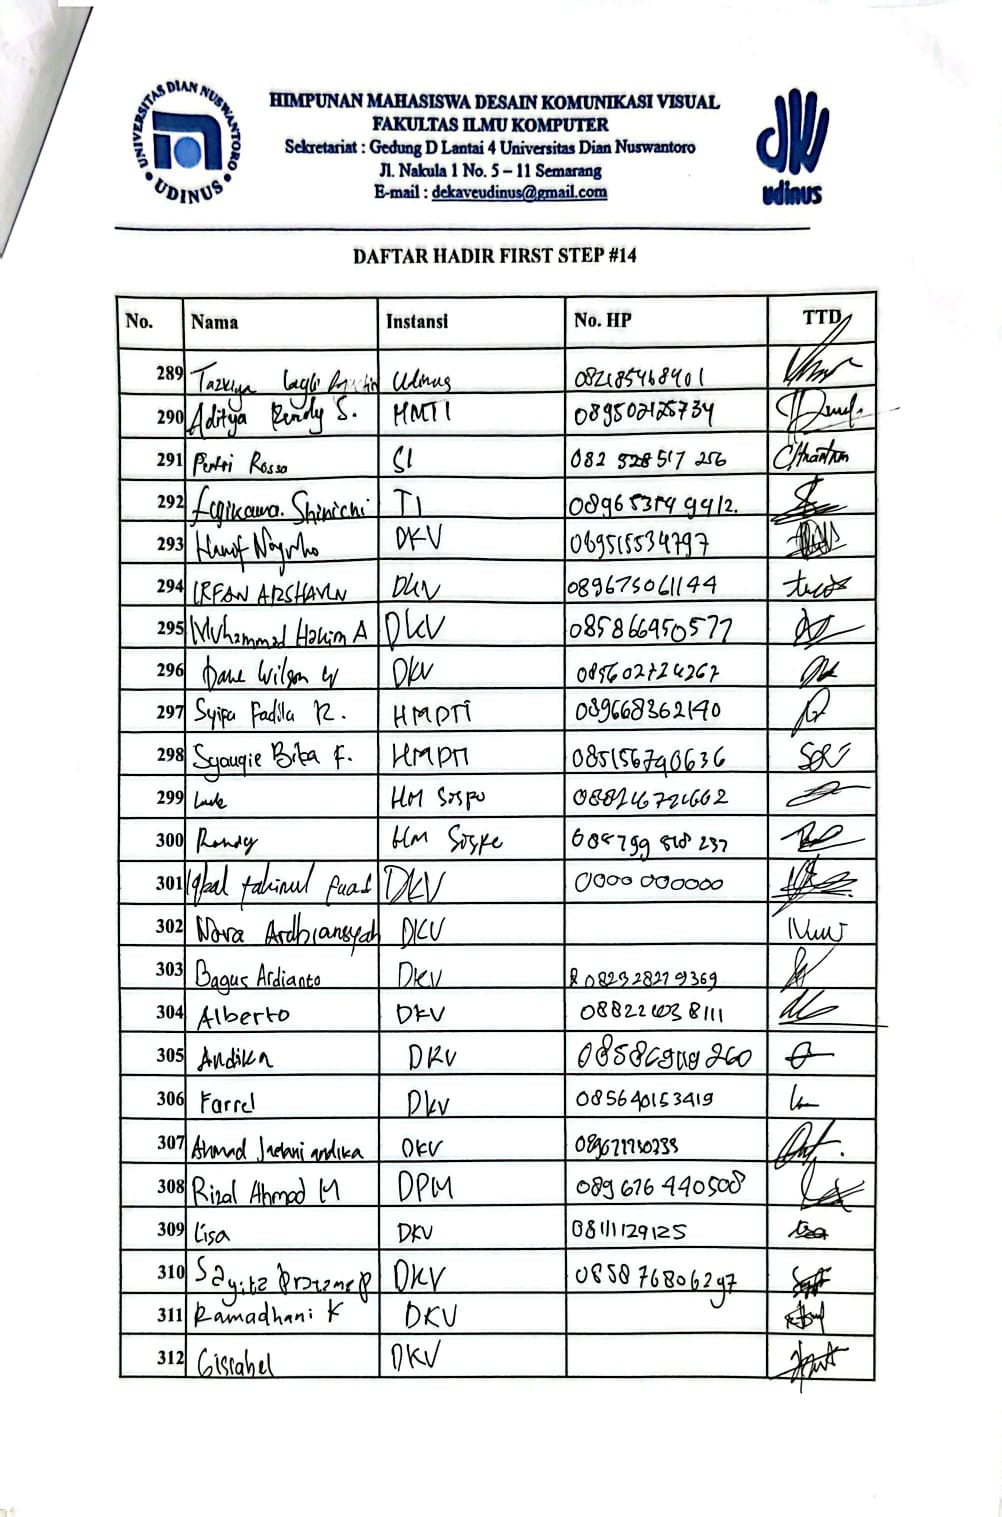 UNIVERSITAS DIAN NUSWANTORO
UDINUS
HIMPUNAN MAHASISWA DESAIN KOMUNIKASI VISUAL
FAKULTAS ILMU KOMPUTER
Sekretariat : Gedung D Lantai 4 Universitas Dian Nuswantoro
Jl. Nakula 1 No. 5 – 11 Semarang
E-mail : dekaveudinus@gmail.com
udinus
DAFTAR HADIR FIRST STEP #14
No. Nama Instansi No. HP TTD
289 Tazkiya Udinus 082185468401
290 Aditya Rendy S. HMTI 089502125734
291 Putri Rossa SI 082 528 517 256
292 Fujikawa. Shinichi TI
293 DKV 089515534797
294 IRFAN ARSHAVIN DKV 089675061144
295 Muhammad Hakim A DKV 085866950577
296 Dane Wilson W DKV 085602724267
297 Syifa Fadila R. HMPTI 089668362140
298 Syauqie Bika F. HMPTI 085156740636
299 HM Sospo 088216721662
300 Randy HM Soske
301 Iqbal fahinul fuad DKV 0000 000000
302 Nova Ardhiansyah DKV
303 Bagus Ardianto DKV 082328279369
304 Alberto DKV
305 Andika DKV
306 Farrel DKV 085640153419
307 Ahmad Jaelani andika DKV
308 Rizal Ahmad M DPM 089 676 440508
309 Lisa DKV 08111129125
310 Sagita Pratama P DKV 085876806297
311 Ramadhani K DKV
312 Gisrahel DKV